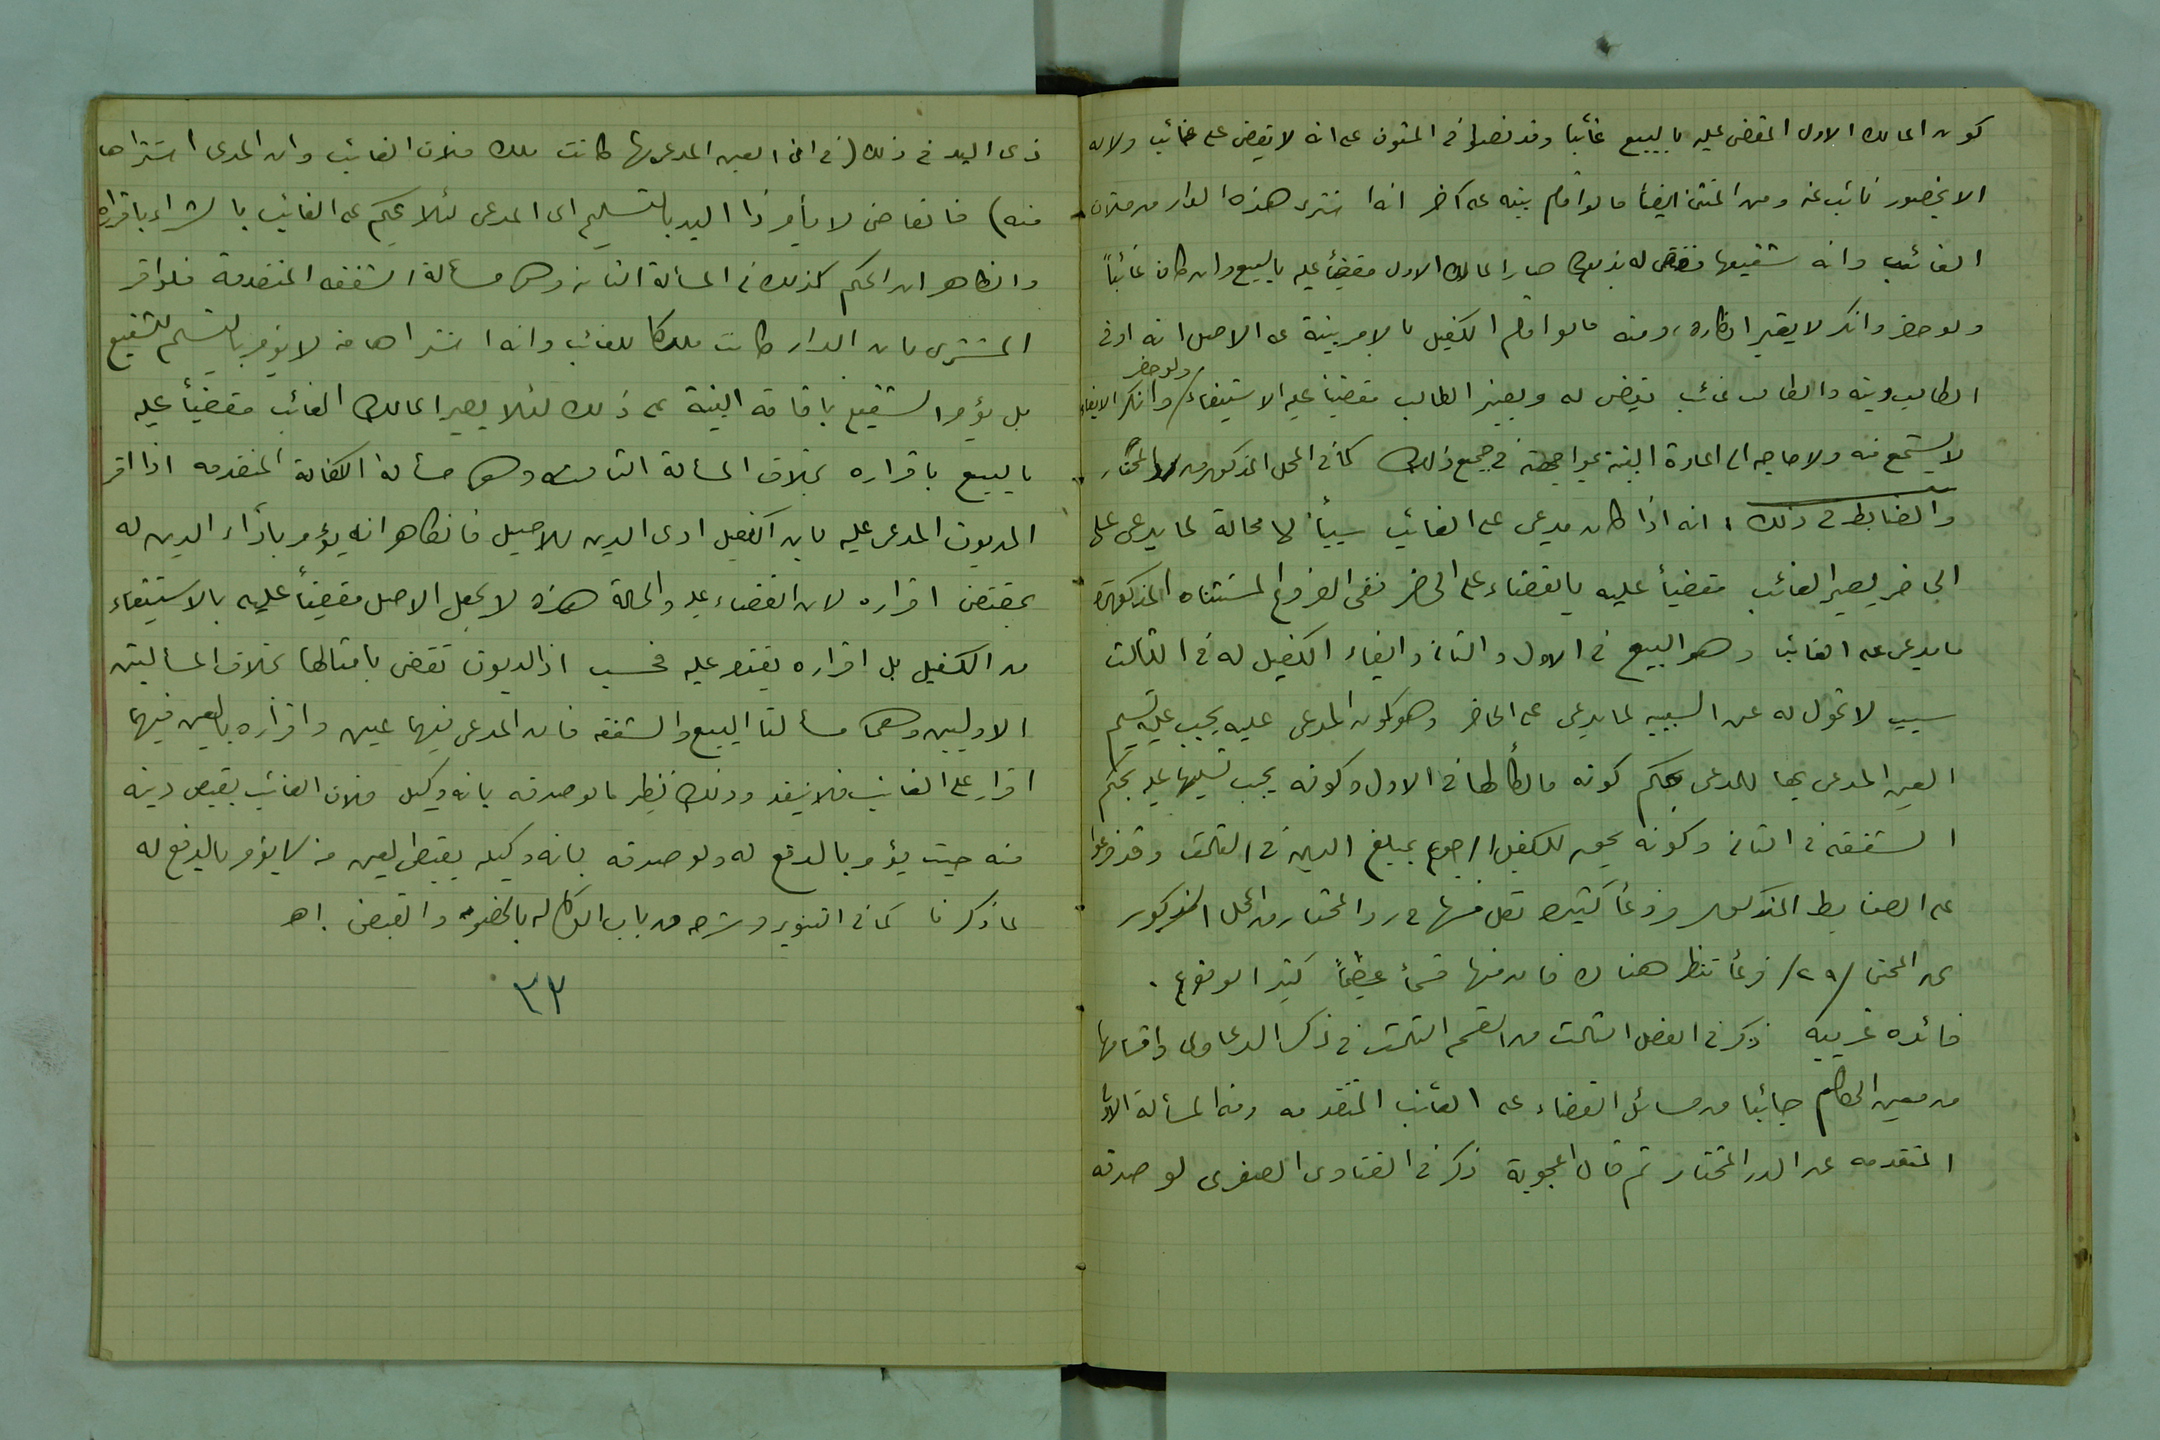 كون المالك الاول المقضى عليه بالبيع غائبا وقد نصوا في المتون على انه لا يقضى على غائب ولا له
الا بحضور نائب عنه ومن المستثنى ايضاً ما لو اقام بينه على آخر انه اشترى هذه الدار من فلان
الغائب وانه شفيعها فقضى له بذلك صار المالك الاول مقضياً عليه بالبيع وان كان غائباً
ولو حضر وانكر لا يعتبر انكاره، ومنه ما لو اقام الكفيل بالامر بينة على الاصل انه اوفى
الطالب دينه والطالب غائب يقضى له ويصير الطالب مقضياً عليه الاستيفاء/ ولو حضر وانكر الايفاء
لا يستمع منه ولا حاجه الى اعادة البينة بمواجهته في جميع ذلك كما في المحل المذكور من رد المحتار
والضابط في ذلك، انه اذا كان ما يدعى على الغائب سبباً لا محالة لما يدعى على
الحاضر يصير الغائب مقضياً عليه بالقضاء على الحاضر ففي الفروع المستثناه المذكورة
ما يدعى على الغائب وهو البيع في الاول والثاني وايفاء الكفيل له في الثالث
سبب لا تحول له عن السببيه لما يدعى على الحاضر وهو كون المدعى عليه يجب عليه تسليم
العين المدعى بها للمدعى بحكم كونه مالكاً لها في الاول وكونه يجب تسليمها عليه بحكم
الشفعة في الثاني وكونه يحق للكفيل الرجوع بمبلغ الدين في الثالث وقد فرعوا
على الضابط المذكور فروعاً كثيره نقل منها في رد المحتار من المحل المذكور
عن المجتبى /٢٩/ فرعاً تنظر هناك فان منها قسماً عظيماً كثير الوقوع .
فائده غريبه ذكر في الفصل الثالث من القسم الثالث في ذكر الدعاوى واقسامها
من معين الحكام جانبا من مسائل القضاء على الغائب المتقدمه ومنه المسألة الاولى
المتقدمه عن الدر المختار ثم قال اعجوبة ذكر في الفتاوى الصغرى لو صدقه
ذى اليد في ذلك (في ان العين المدعى بها كانت ملك فلان الغائب وان المدعى اشتراها
منه) فالقاضى لا يأمر ذا اليد بالتسليم الى المدعى لئلا يحكم على الغائب بالشراء باقراره
والظاهر ان الحكم كذلك في المسألة الثانيه وهى مسألة الشفعه المتقدمة فلو اقر
المشترى بان الدار كانت ملكا للغائب وانه اشتراها منه لا يؤمر بالتسليم للشفيع
بل يؤمر الشفيع باقامة البينة على ذلك لئلا يصير المالك الغائب مقضياً عليه
بالبيع باقراره بخلاف المسألة الثالثه وهى مسألة الكفالة المتقدمه اذا اقر
المديون المدعى عليه بان الكفيل ادى الدين للاصيل فالظاهر انه يؤمر بأداء الدين له
بمقتضى اقراره لان القضاء عليه والحالة هذه لا يجعل الاصل مقضياً عليه بالاستيفاء
من الكفيل بل اقراره يقتصر عليه فحسب اذ الديون تقضى بامثالها بخلاف المسألتين
الاوليين وهما مسألتا البيع والشفعه فان المدعى فيهما عين واقراره بالعين فيهما
اقرار على الغائب فلا ينفذ وذلك نظير ما لو صدقه بانه وكيل فلان الغائب بقبض دينه
منه حيث يؤمر بالدفع له ولو صدقه بانه وكيله بقبض العين منه لا يؤمر بالدفع له
لما ذكرنا كما في التنوير وشرحه من باب الوكاله بالخصومه والقبض . اهـ
٣٣